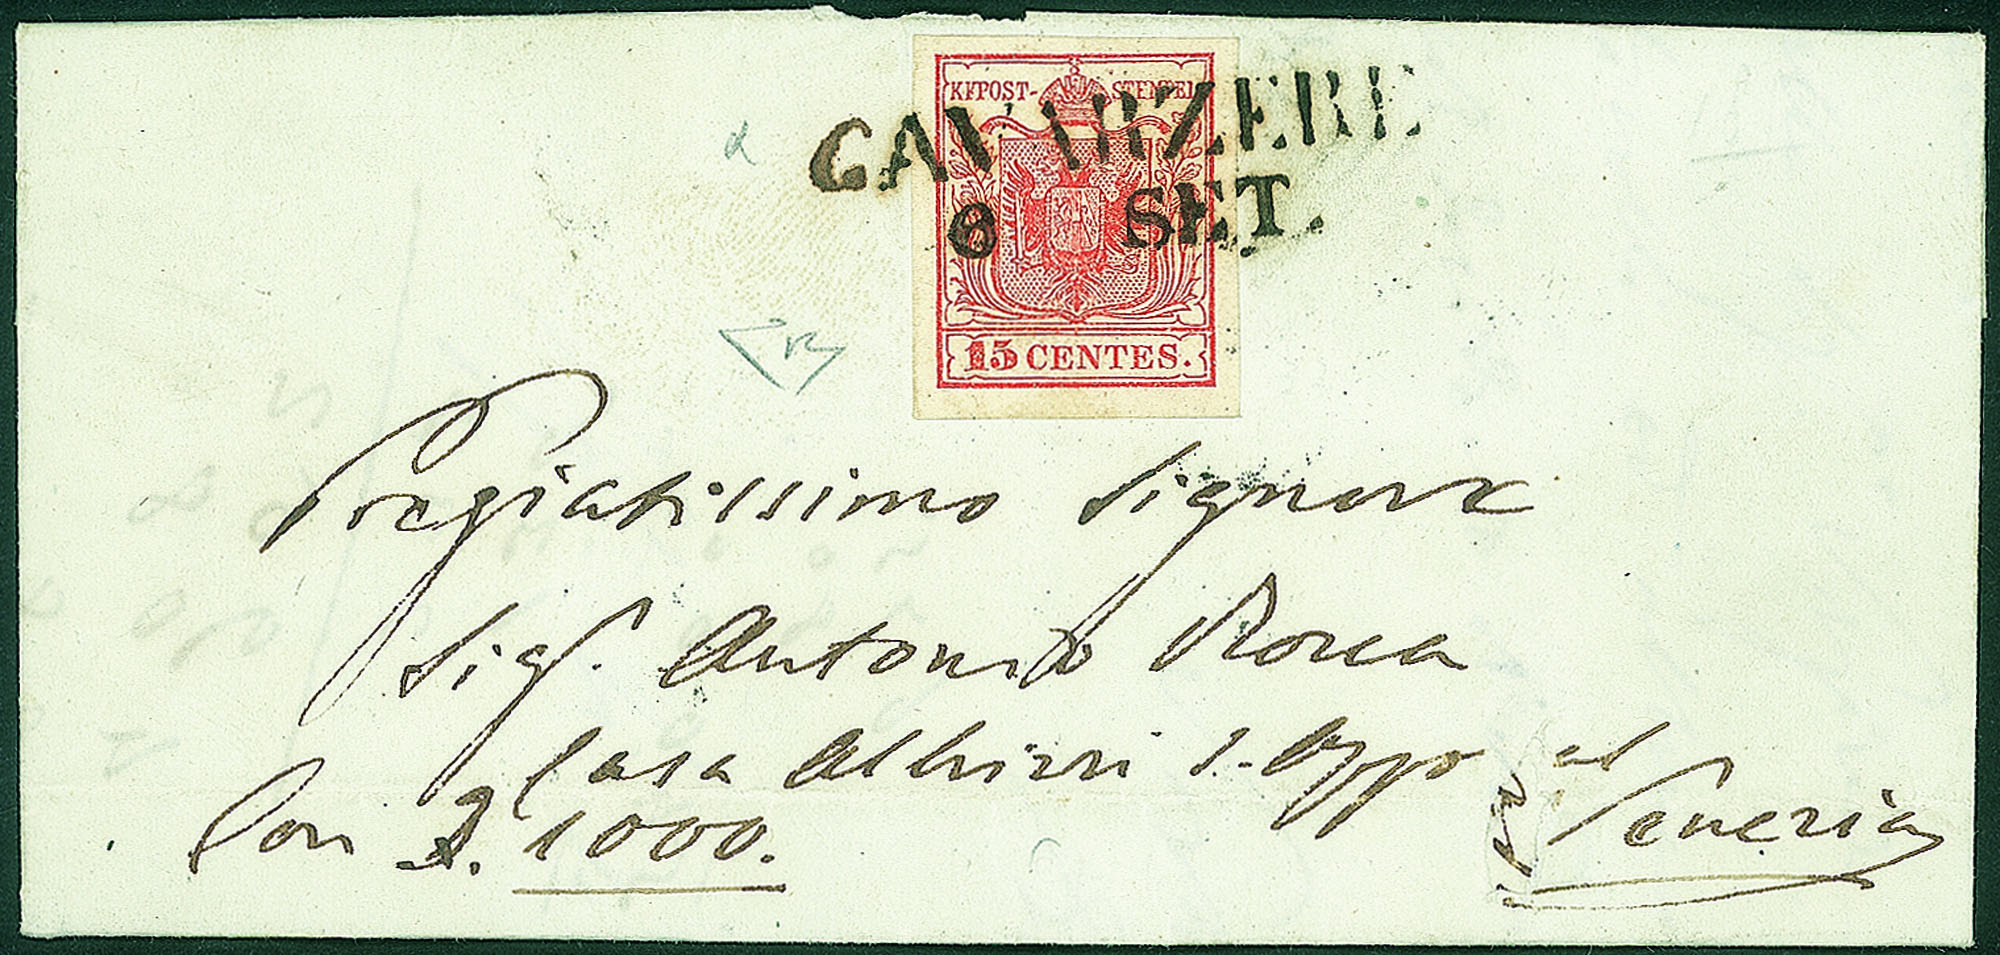 KKPOST- STEMPEL
CAVARZERE
6 SET.
15 CENTES.
Pregiatissimo Signore
Sigr. Antonio
Casa Albrizzi S.
Con 1000.
Venezia